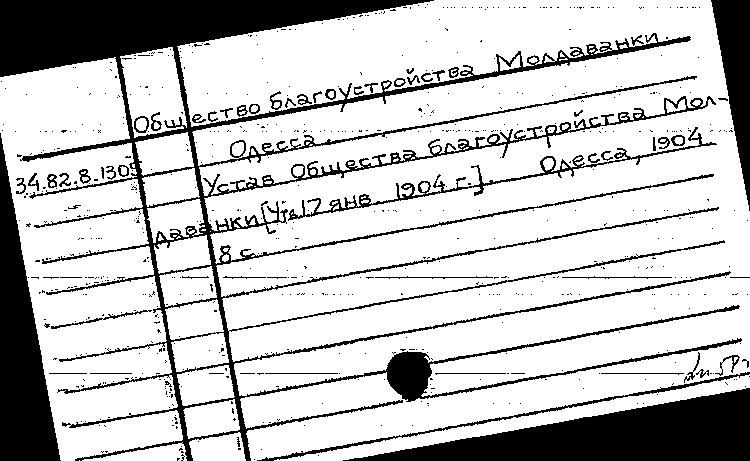 Общество благоустройства Молдаванки.
Одесса.
34.82.8.1305
Устав Общества благоустройства Мол-
даванки [Утв. 17 янв. 1904 г.]. Одесса, 1904.
8 с.